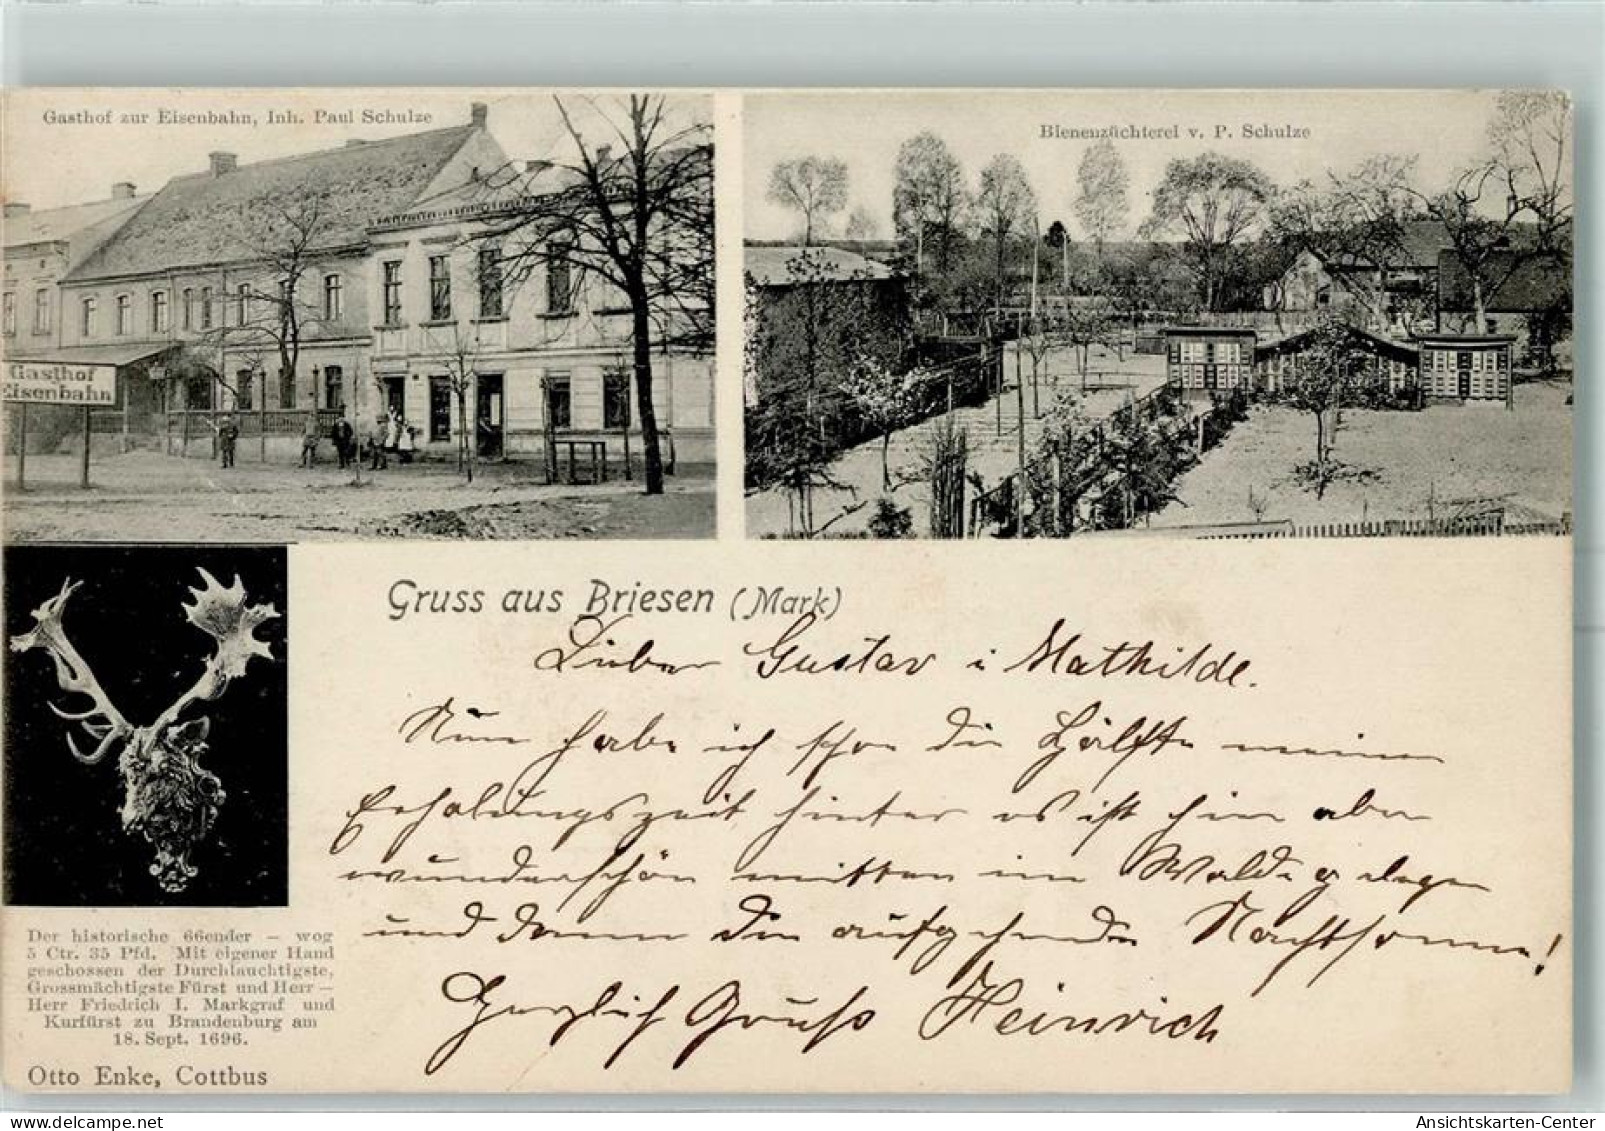 Gasthof zur Eisenbahn, Inh. Paul Schulze
Bienenzüchterei v. P. Schulze
Gasthof
Eisenbahn
Gruss aus Briesen (Mark)
Lieber Gustav u Mathilde.
Nun habe ich schon die Hälfte meiner
Erholungszeit hinter es ist hier aber
wunderschön mitten im Walde gelegen
und dann die aufgehende Nachtsonne!
Herzlich Gruß Heinrich
Der historische 66ender — wog
5 Ctr. 35 Pfd. Mit eigener Hand
geschossen der Durchlauchtigste,
Grossmächtigste Fürst und Herr —
Herr Friedrich I. Markgraf und
Kurfürst zu Brandenburg am
18. Sept. 1696.
Otto Enke, Cottbus
Ansichtskarten-Center